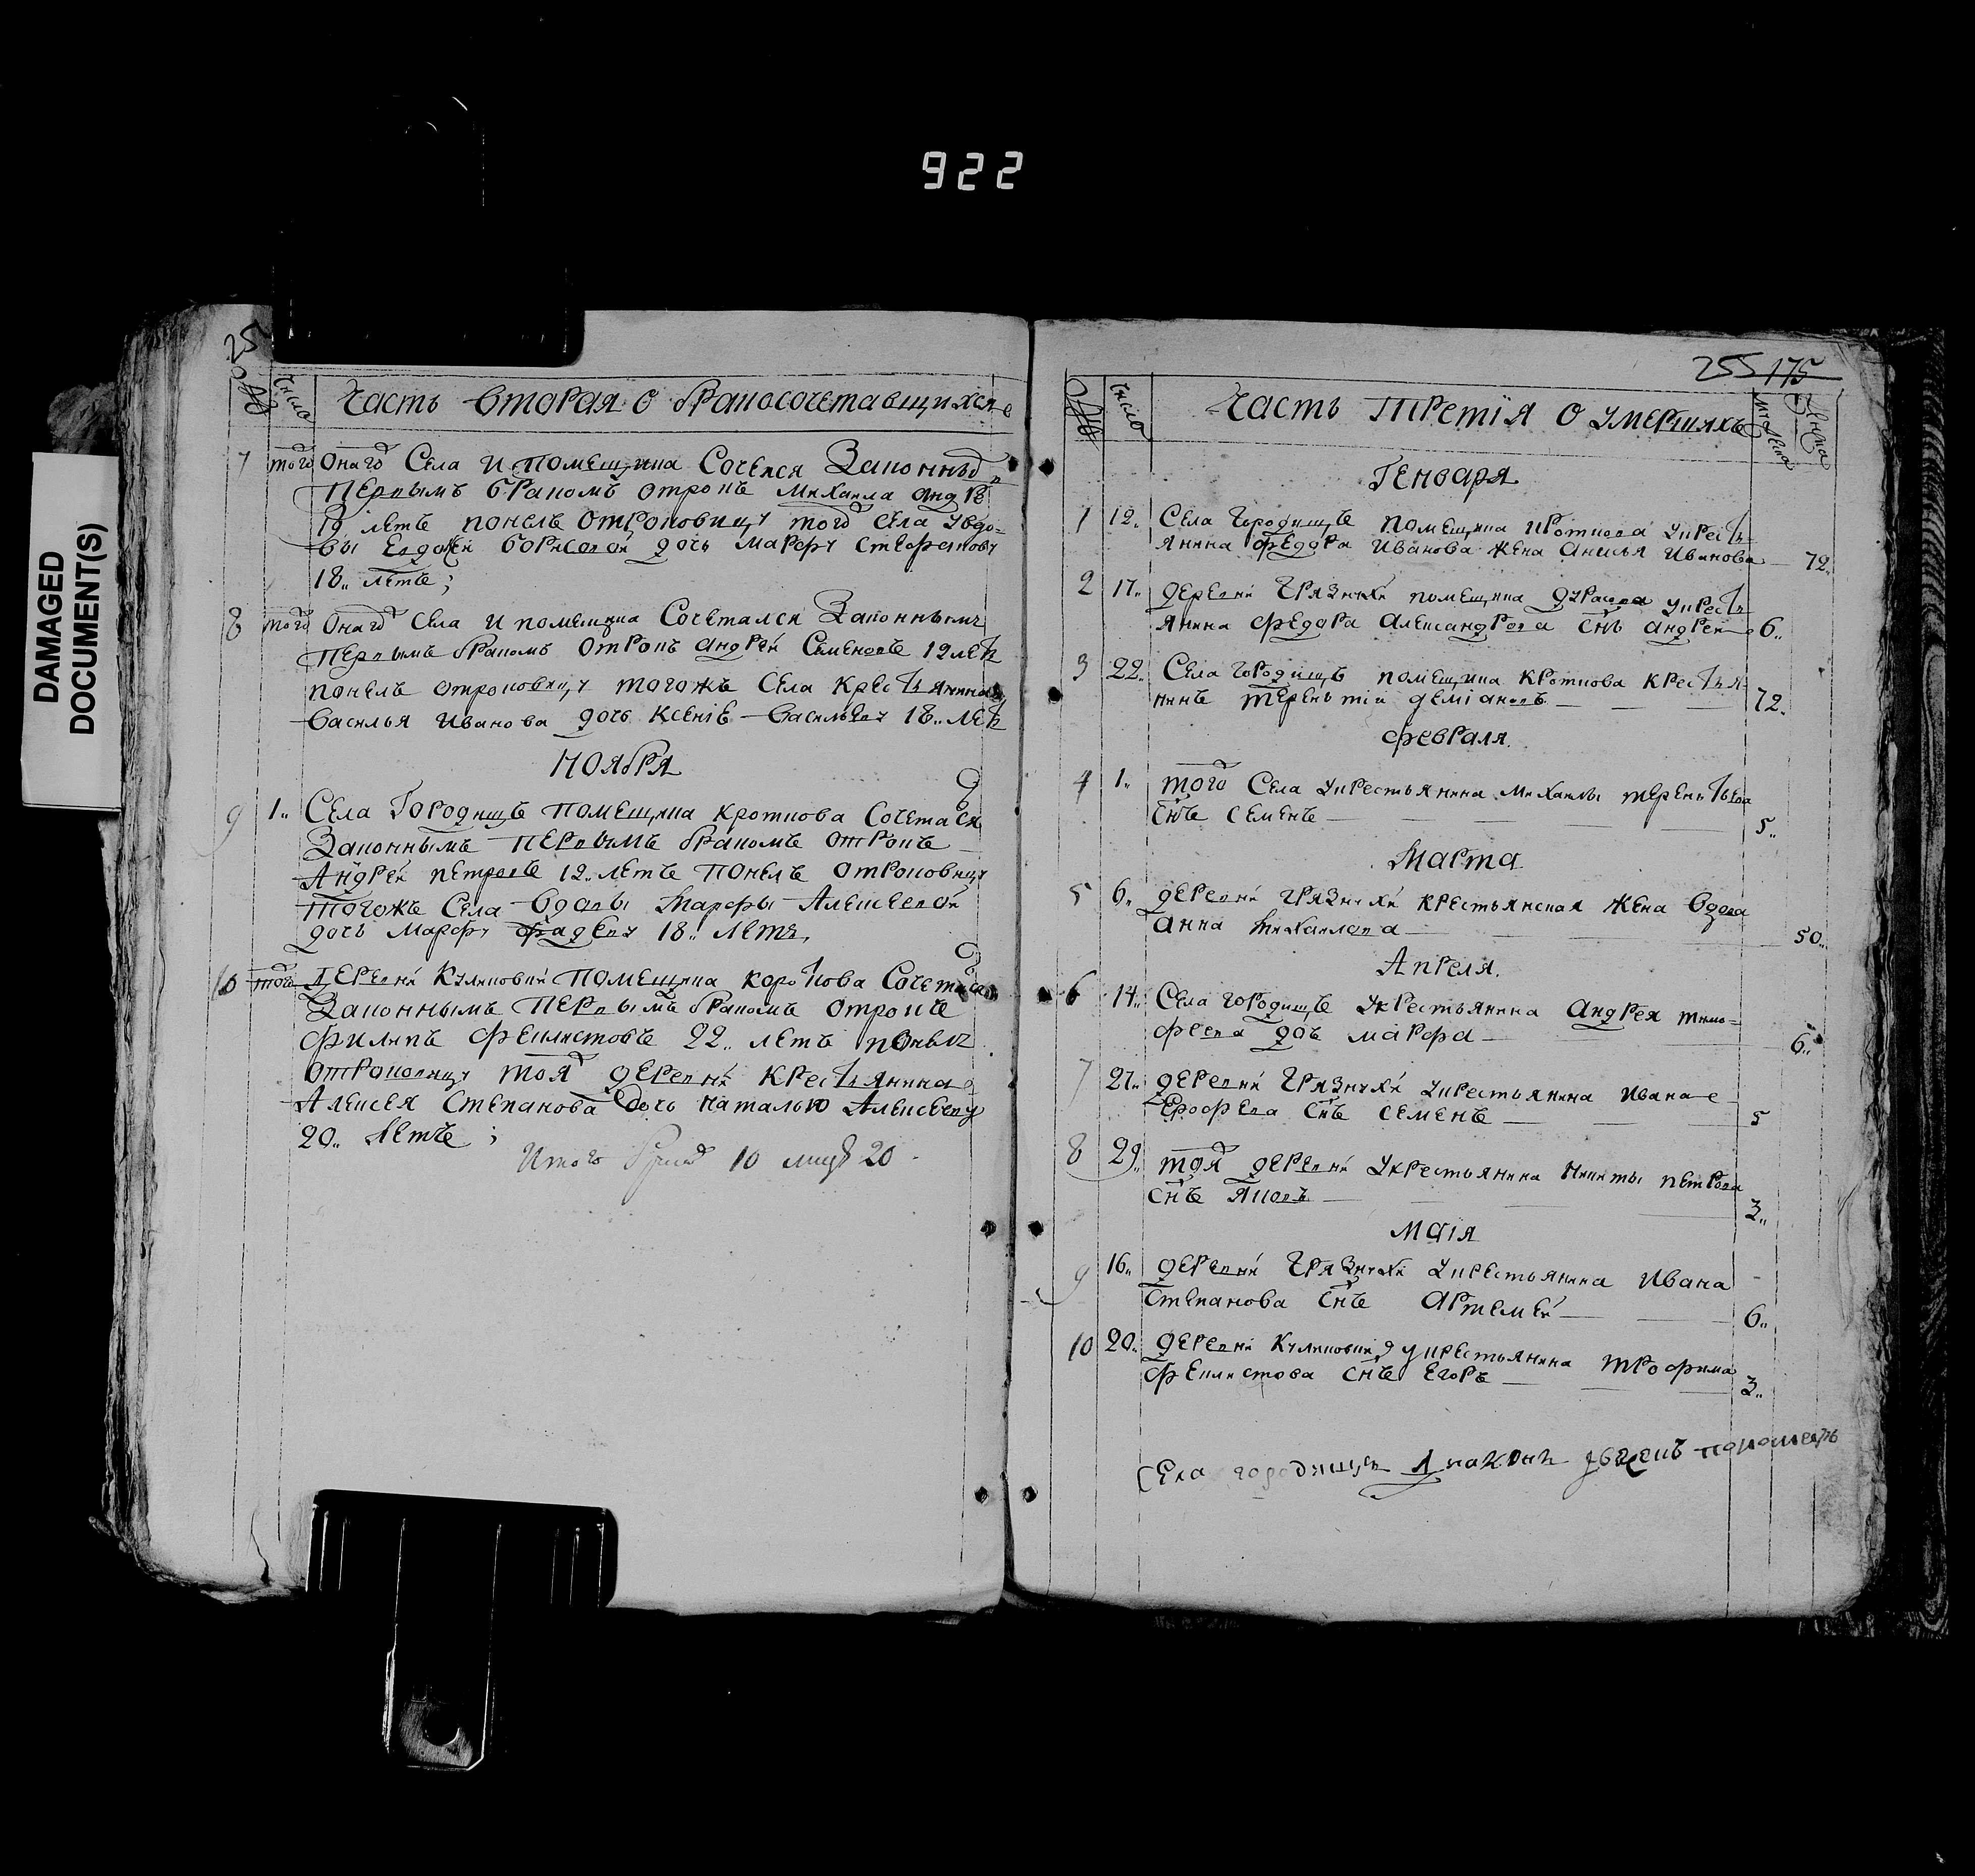 922
DAMAGED
DOCUMENT(S)
25
№
число
Часть вторая о бракосочетавщихся
7 того Онаго Села и помещика Сочелся Законныъ
первымъ бракомъ отрокъ Михаила
19 летъ понелъ отроковицу того села у вдо-
вы Евдокеи Борисовой дочь марфу стефанову
18 летъ;
8 того Онаго села и помещика Сочетался Законнымъ
первымъ бракомъ отрокъ андрей Семеновъ 19 летъ
понелъ отроковицу тогожъ Села крестьянина
василья иванова дочь ксенiю васильеву 18 летъ
Ноября
9 1 Села Городищъ помещика кроткова Сочетася
Законнымъ первымъ бракомъ отрокъ
Андрей петровъ 19 летъ понелъ отроковицу
тогожъ Села вдовы марфы Алексевой
дочь марфу фадеву 18 летъ,
10 того Деревни Куликовки помещика Сочетася
Законнымъ первымъ бракомъ отрокъ
филипъ феклистовъ 22 летъ понелъ
отроковицу тоя деревни крестьянина
Алексея Степанова дочь наталью Алексеву
20 летъ;
Итого 10 20
255 175
№
число
Часть третiя о умершихъ
Генваря
1 12 Села городищъ помещика кроткова у крестъ
янина федора иванова жена анисья иванова 72
2 17 деревни Грязнухи помещика дурасова у крестъ
янина федора александрова снъ андрей 6
3 22 Села городищъ помещика кроткова крестья-
нинъ терентiй демiановъ 72
февраля
4 1 того Села у крестьянина михаилы терентьева
снъ семенъ 5
Марта
5 6 деревни грязнухи крестьянская жена вдова
анна михаилова 50
Апреля
6 14 Села городищъ у крестьянина андрея тимо=
феева дочъ марфа 6
7 27 деревни грязнухи у крестьянина ивана е
рофева снъ семенъ 5
8 29 тоя деревни у крестьянина никиты петрова
снъ яковъ 3
маiя
9 16 деревни грязнухи у крестьянина ивана
Степанова снъ артемей 6
10 20 деревни куликовки у крестьянина трофима
феклистова снъ егоръ 3
Села городищъ